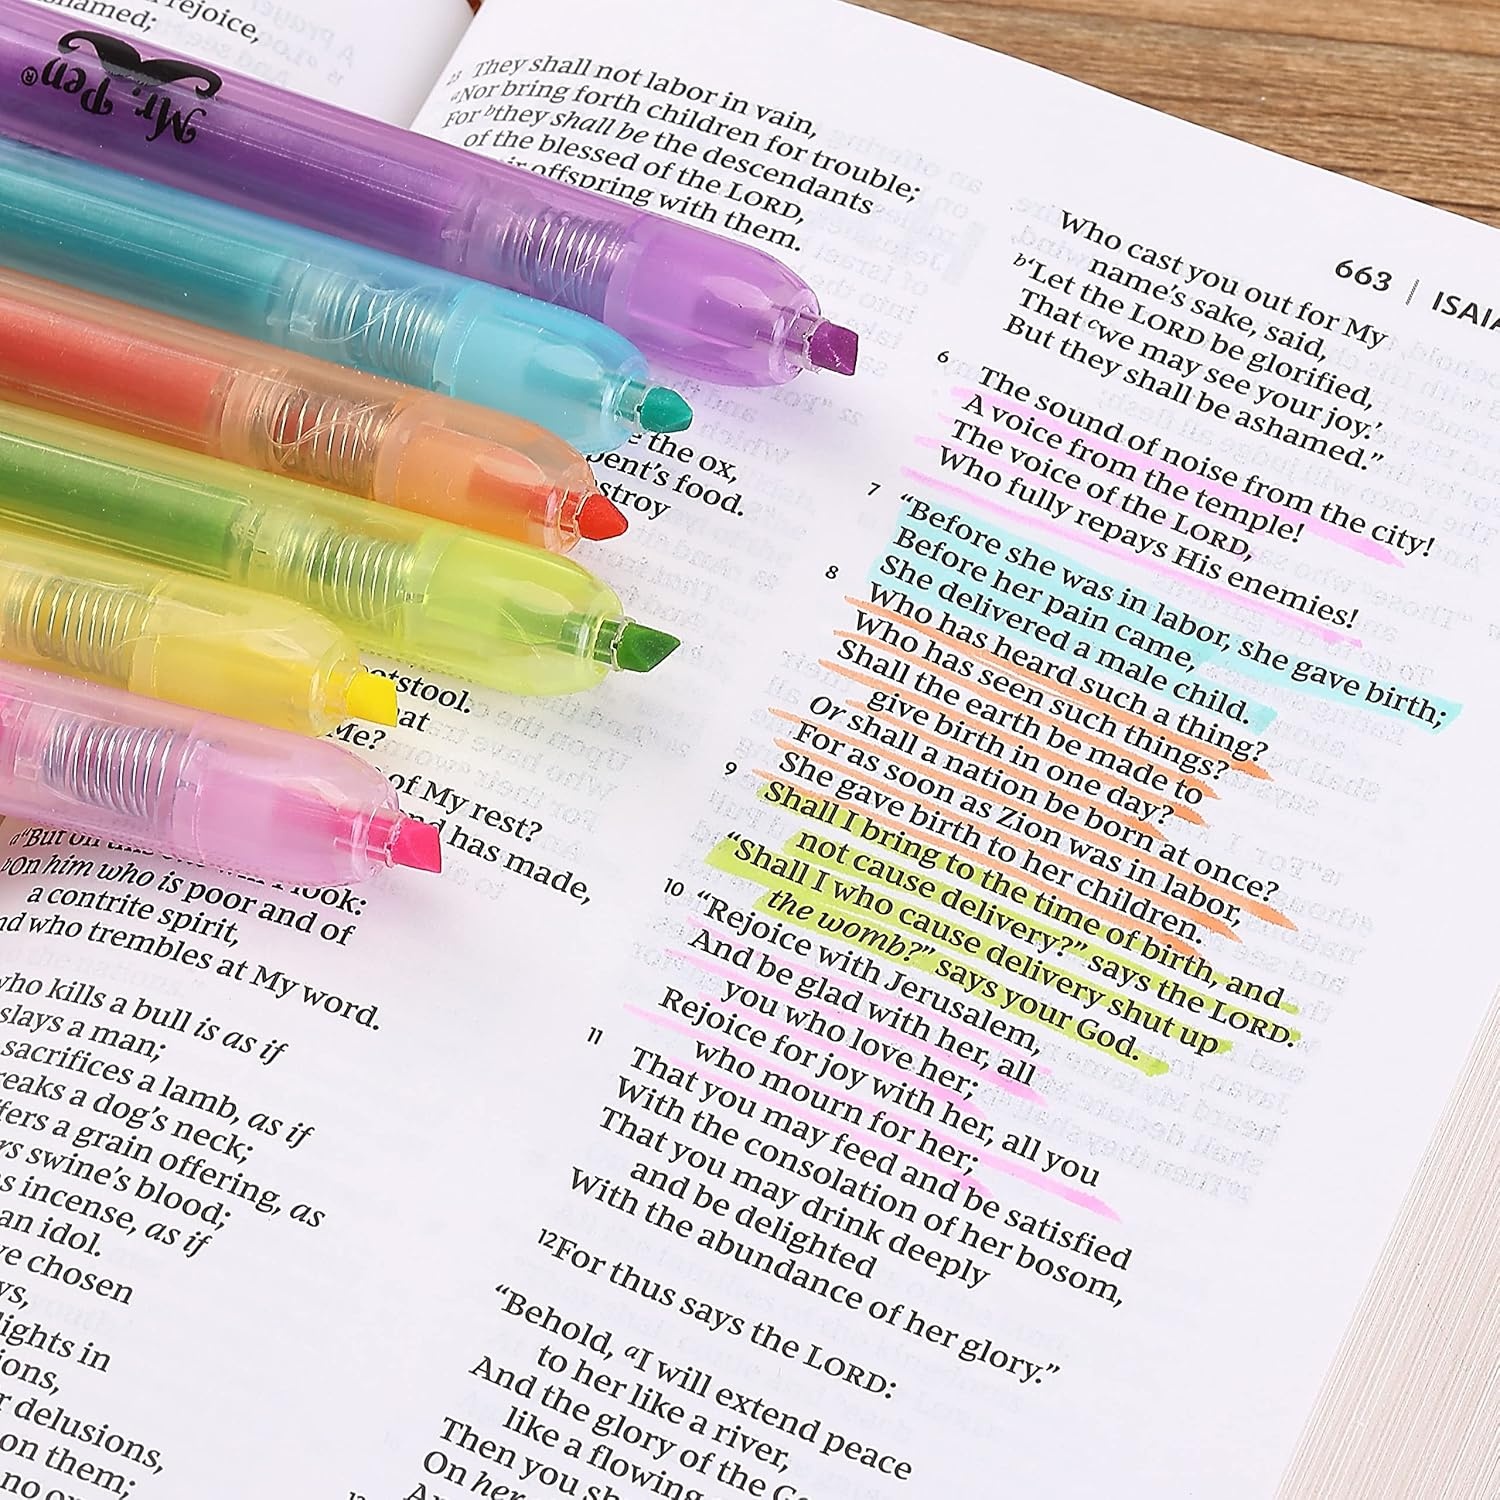 rejoice,
ashamed;
Mr. Pen®
23 They shall not labor in vain,
aNor bring forth children for trouble;
For bthey shall be the descendants
of the blessed of the LORD,
offspring with them.
the ox,
food.
otstool.
at
Me?
of My rest?
has made,
look:
bOn him who is poor and of
a contrite spirit,
who trembles at My word.
who kills a bull is as if
slays a man;
sacrifices a lamb, as if
a dog's neck;
a grain offering, as
swine's blood;
incense, as if
an idol.
chosen
in
delusions,
on them;
no
663 | ISAIA
Who cast you out for My
name's sake, said,
b'Let the LORD be glorified,
That cwe may see your joy.'
But they shall be ashamed."
6 The sound of noise from the city!
A voice from the temple!
The voice of the LORD,
Who fully repays His enemies!
7 "Before she was in labor, she gave birth;
Before her pain came,
She delivered a male child.
8 Who has heard such a thing?
Who has seen such things?
Shall the earth be made to
give birth in one day?
Or shall a nation be born at once?
For as soon as Zion was in labor,
She gave birth to her children.
9 Shall I bring to the time of birth, and
not cause delivery?" says the LORD.
"Shall I who cause delivery shut up
the womb?" says your God.
10 "Rejoice with Jerusalem,
And be glad with her, all
you who love her;
Rejoice for joy with her, all you
who mourn for her;
11 That you may feed and be satisfied
With the consolation of her bosom,
That you may drink deeply
and be delighted
With the abundance of her glory."
12For thus says the LORD:
"Behold, aI will extend peace
to her like a river,
And the glory of the
like a flowing
Then you
On her